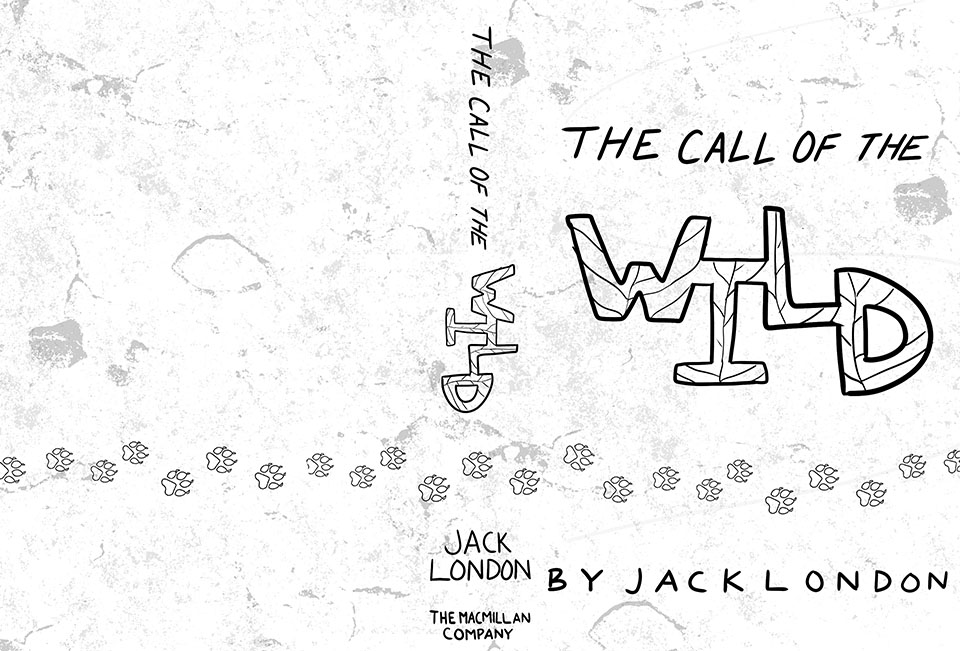 THE CALL OF THE
WILD
JACK
LONDON
THE MACMILLAN
COMPANY
THE CALL OF THE
WILD
BY JACK LONDON